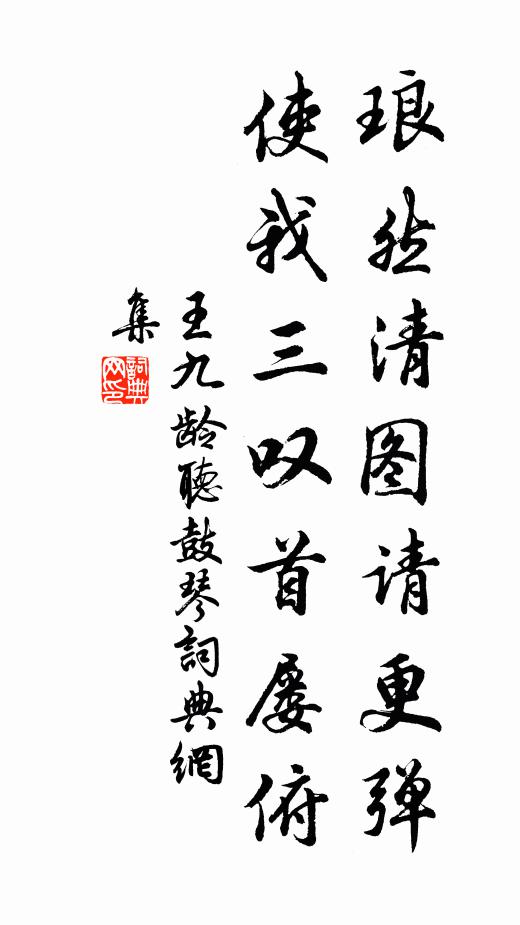 琅然清图请更弹
使我三叹首屡俯
王九龄聽鼓琴詞典網
集
詞典网印